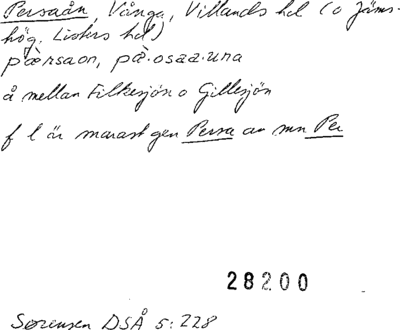 Persaån, Vånga, Villands hd (o Jäms-
hög. Listers hd)
pæ̀rsaon, pæ̀·osaa·una
å mellan Filkesjön o Gillesjön
f l är marast gen Persa av mn Per
28200
Sørensen DSÅ 5:228